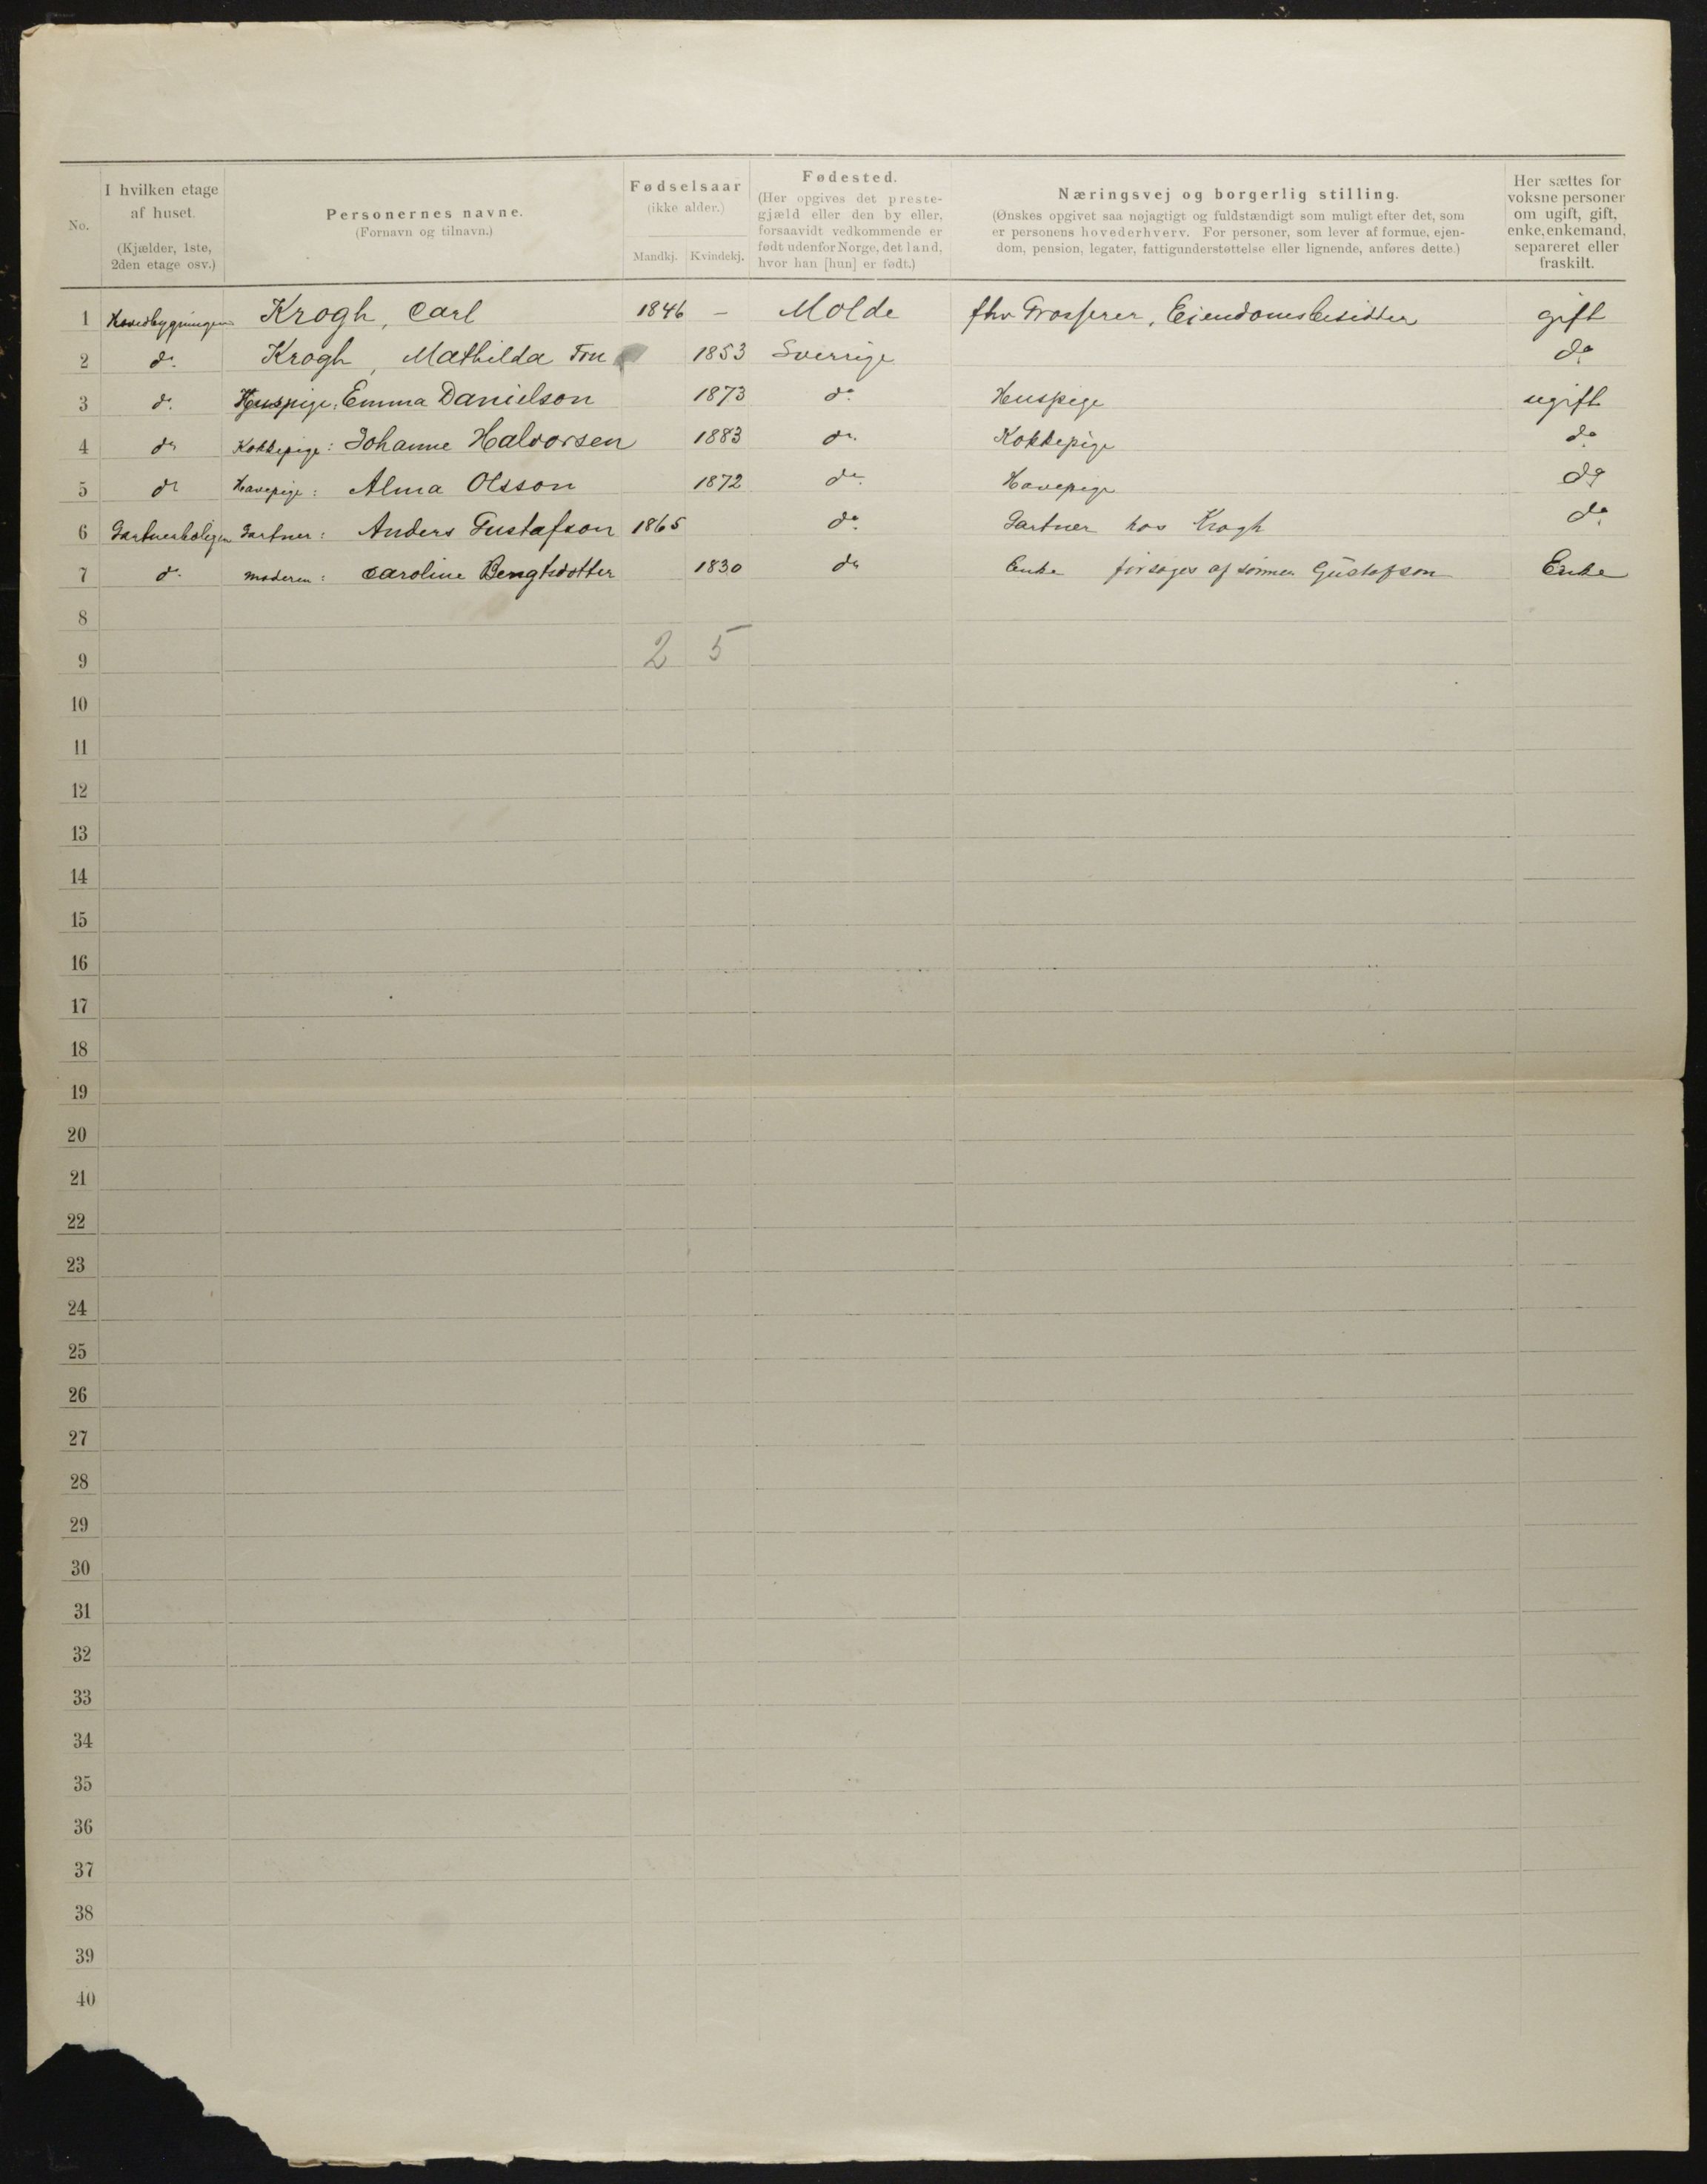 No.
I hvilken etage
af huset.
(Kjælder, 1ste,
2den etage osv.)
Personernes navne.
(Fornavn og tilnavn.)
Fødselsaar
(ikke alder.)
Mandkj. Kvindekj.
Fødested.
(Her opgives det preste-
gjæld eller den by eller,
forsaavidt vedkommende er
født udenfor Norge, det land,
hvor han [hun] er født.)
Næringsvej og borgerlig stilling.
(Ønskes opgivet saa nøjagtigt og fuldstændigt som muligt efter det, som
er personens hovederhverv. For personer, som lever af formue, ejen-
dom, pension, legater, fattigunderstøttelse eller lignende, anføres dette.)
Her sættes for
voksne personer
om ugift, gift,
enke, enkemand,
separeret eller
fraskilt.
1 Hovedbygningen Krogh, Carl 1846 – Molde fhv Grosserer, Eiendomsbesidder gift
2 do. Krogh, Mathilda Fru 1853 Sverrige do.
3 do. Huspige: Emma Danielson 1873 do. Huspige ugift
4 do Kokkepige: Johanne Halvorsen 1883 do. Kokkepige do.
5 do Havepige: Alma Olsson 1872 do. Havepige do
6 Gartnerboligen Gartner: Anders Gustafson 1865 do. Gartner hos Krogh do.
7 do. moderen: Caroline Bengtsdotter 1830 do Enke forsøges af sønnen Gustafson Enke
8
9 2 5
10
11
12
13
14
15
16
17
18
19
20
21
22
23
24
25
26
27
28
29
30
31
32
33
34
35
36
37
38
39
40